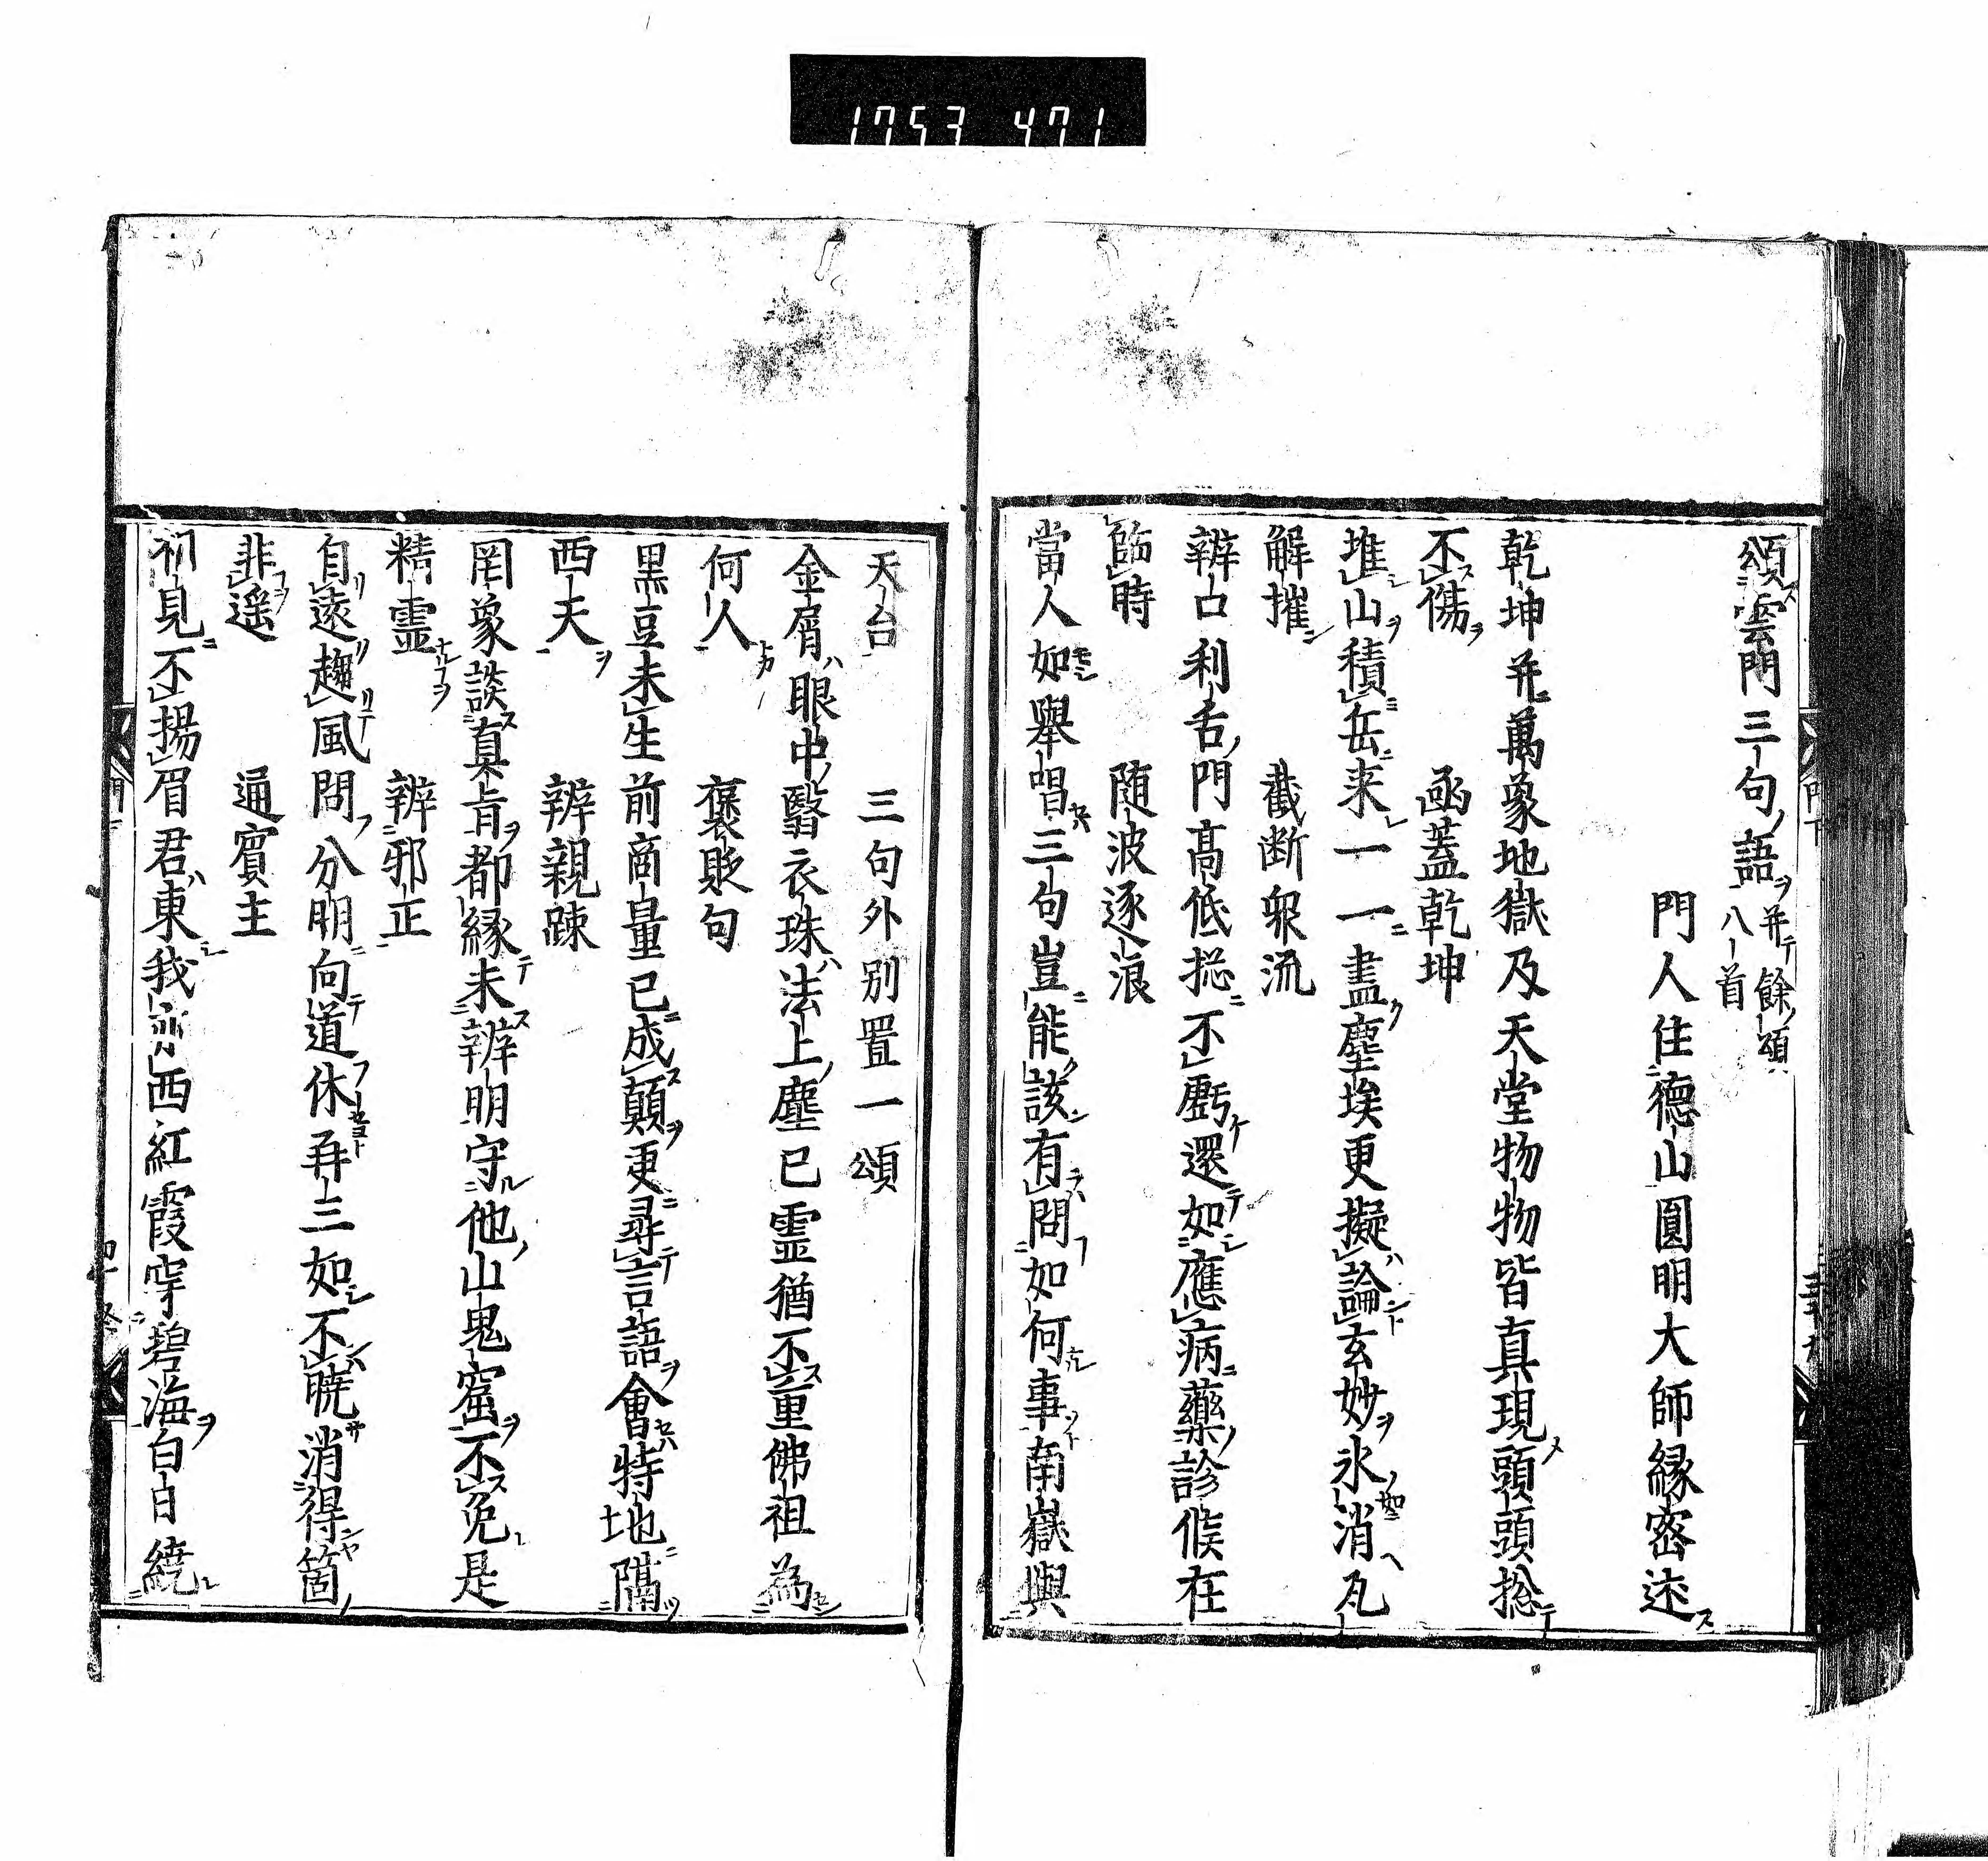 1753 471
頌雲門三句語并餘頌八首
門人住德山圓明大師縁密述
乾坤并萬象地獄及天堂物物皆真現頭頭捴
不傷　函蓋乾坤
堆山積岳来一一盡塵埃更擬論玄妙氷消瓦
解摧　截断衆流
辨口利舌門高低捴不虧還如應病藥診候在
臨時　随波逐浪
當人如舉唱三句豈能該有問如何事南嶽與
天台　三句外別置一頌
金屑眼中翳衣珠法上塵已霊猶不重佛祖為
何人　褒貶句
黒豆未生前商量已成顛更尋言語會特地隔
西天　辨親踈
罔象談真旨都縁未辨明守他山鬼窟不免是
精霊　辨邪正
自遠趨風問分明向道休再三如不暁消得箇
非遥　通賓主
初見不揚眉君東我亦西紅霞穿碧海白日繞